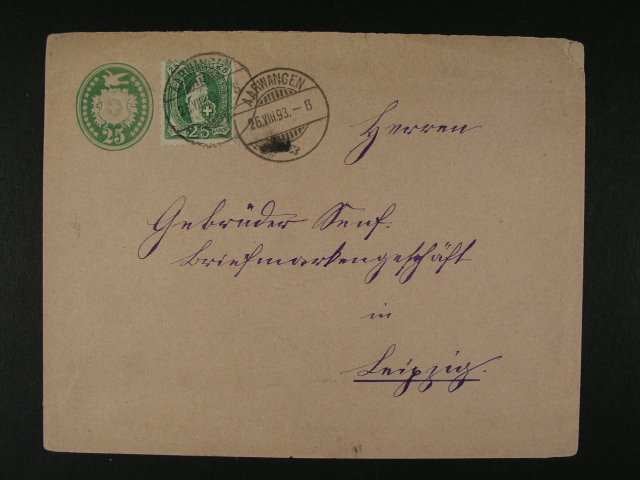 25
AARWANGEN
25
AARWANGEN
26.VIII.93.-6
Herren
Gebrüder Senf.
Briefmarkengeschäft
in
Leipzig.